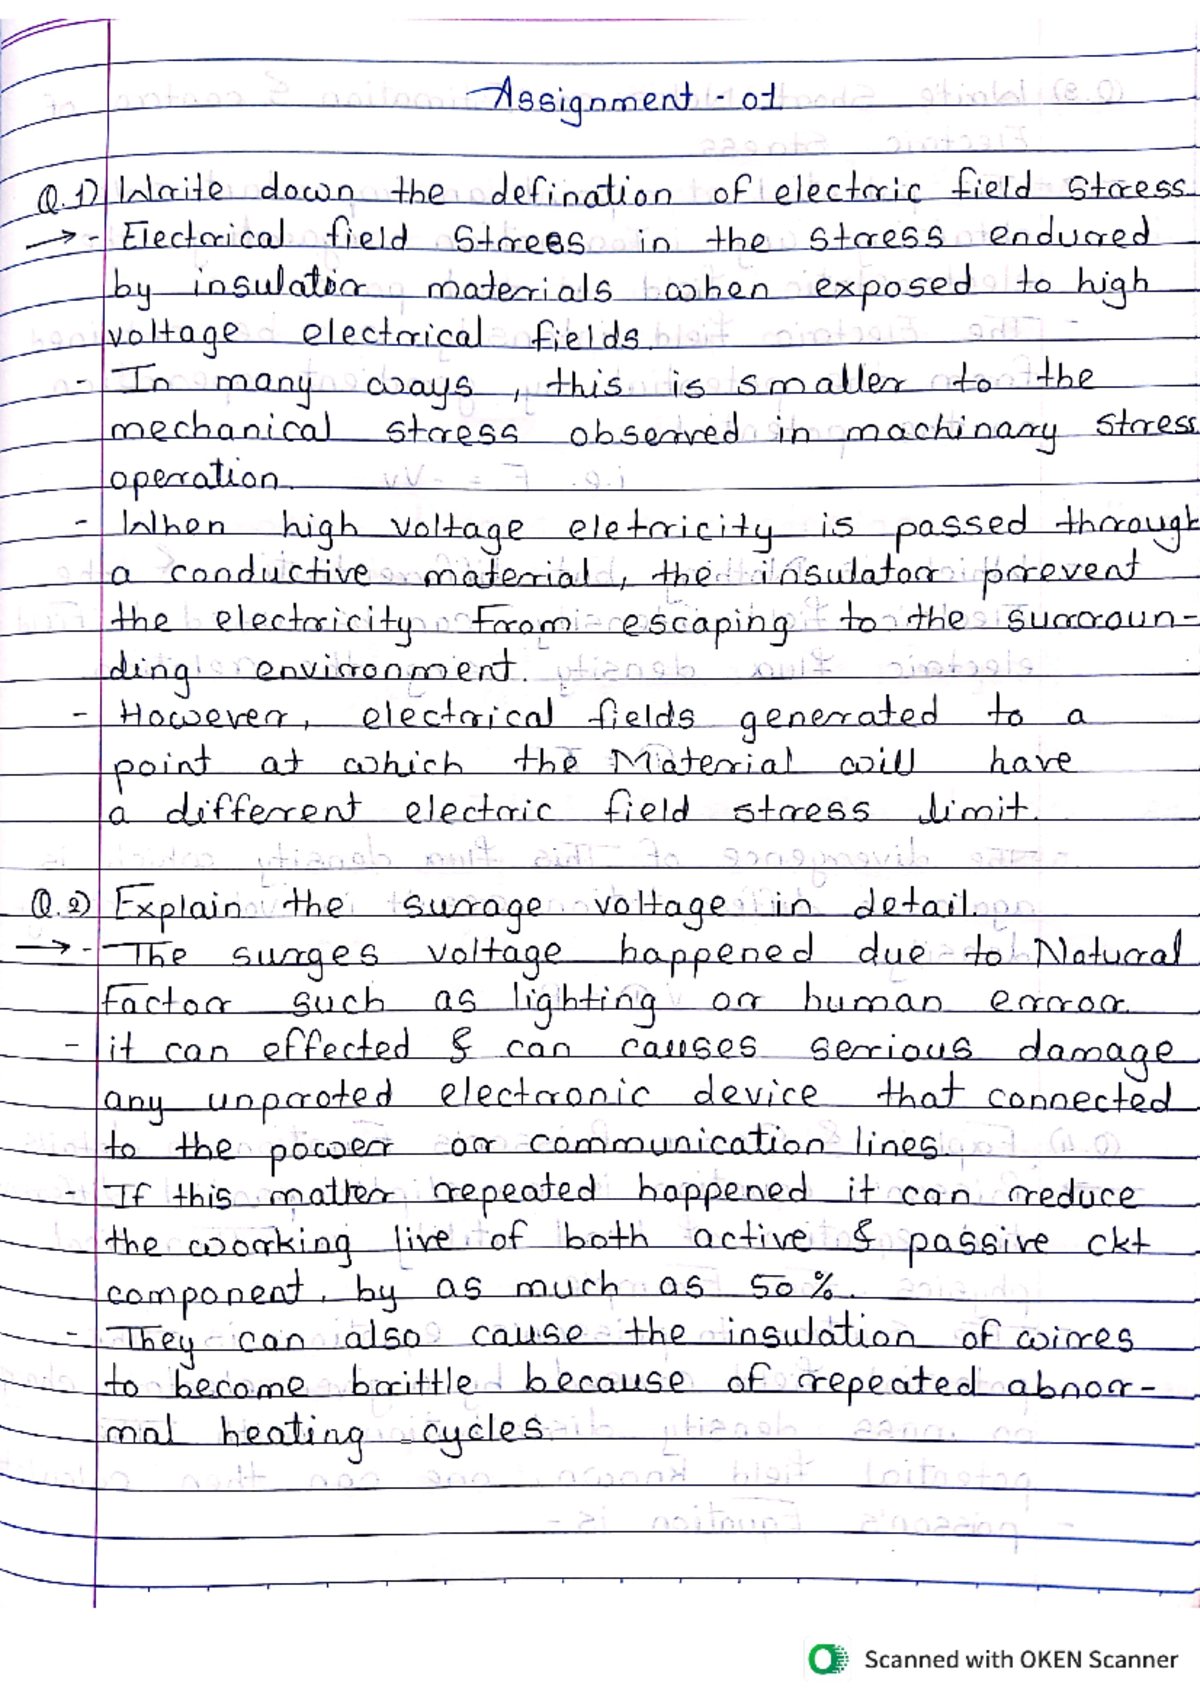 Assignment - 01
Q.1) Write down the defination of electric field stress
→ - Electrical field Strees in the stress endured
by insulator materials when exposed to high
voltage electrical fields.
- In many ways, this is smaller to the
mechanical stress observed in machinary stress
operation.
- When high voltage eletricity is passed through
a conductive material, the insulator prevent
the electricity from escaping to the surroun-
ding environment.
- However, electrical fields generated to a
point at which the Material will have
a different electric field stress limit.
Q.2) Explain the surage voltage in detail.
→ - The surges voltage happened due to Natural
factor such as lighting or human error.
- it can effected & can causes serious damage
any unproted electronic device that connected
to the power or communication lines.
- If this matter repeated happened it can reduce
the working live of both active & passive ckt
component. by as much as 50%.
- They can also cause the insulation of wires
to become brittle because of repeated abnor-
mal heating cycles.
Scanned with OKEN Scanner